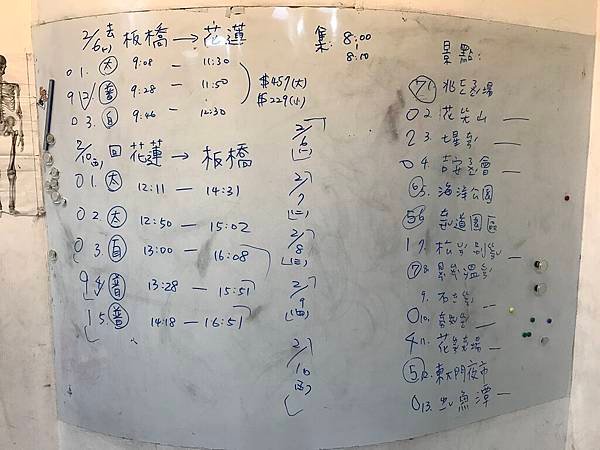 2/6(一) 去 板橋 → 花蓮
0 1. 太 9:08 — 11:30
9 2. 普 9:28 — 11:50
0 3. 自 9:46 — 12:30
$457(大)
$229(小)
2/10(五) 回 花蓮 → 板橋
0 1. 太 12:11 — 14:31
0 2. 太 12:50 — 15:02
0 3. 自 13:00 — 16:08
9 4. 普 13:28 — 15:51
1 5. 普 14:18 — 16:51
集: 8:00
8:10
2/6(一)
2/7(二)
2/8(三)
2/9(四)
2/10(五)
景點:
7 1. 兆豐農場
0 2.
2 3. 七星
0 4.
6 5. 海洋公園
5 6. 園區
1 7. 松園別館
7 8. 溫泉
9.
0 10.
4 11. 花
5 12. 東大門夜市
0 13. 魚潭